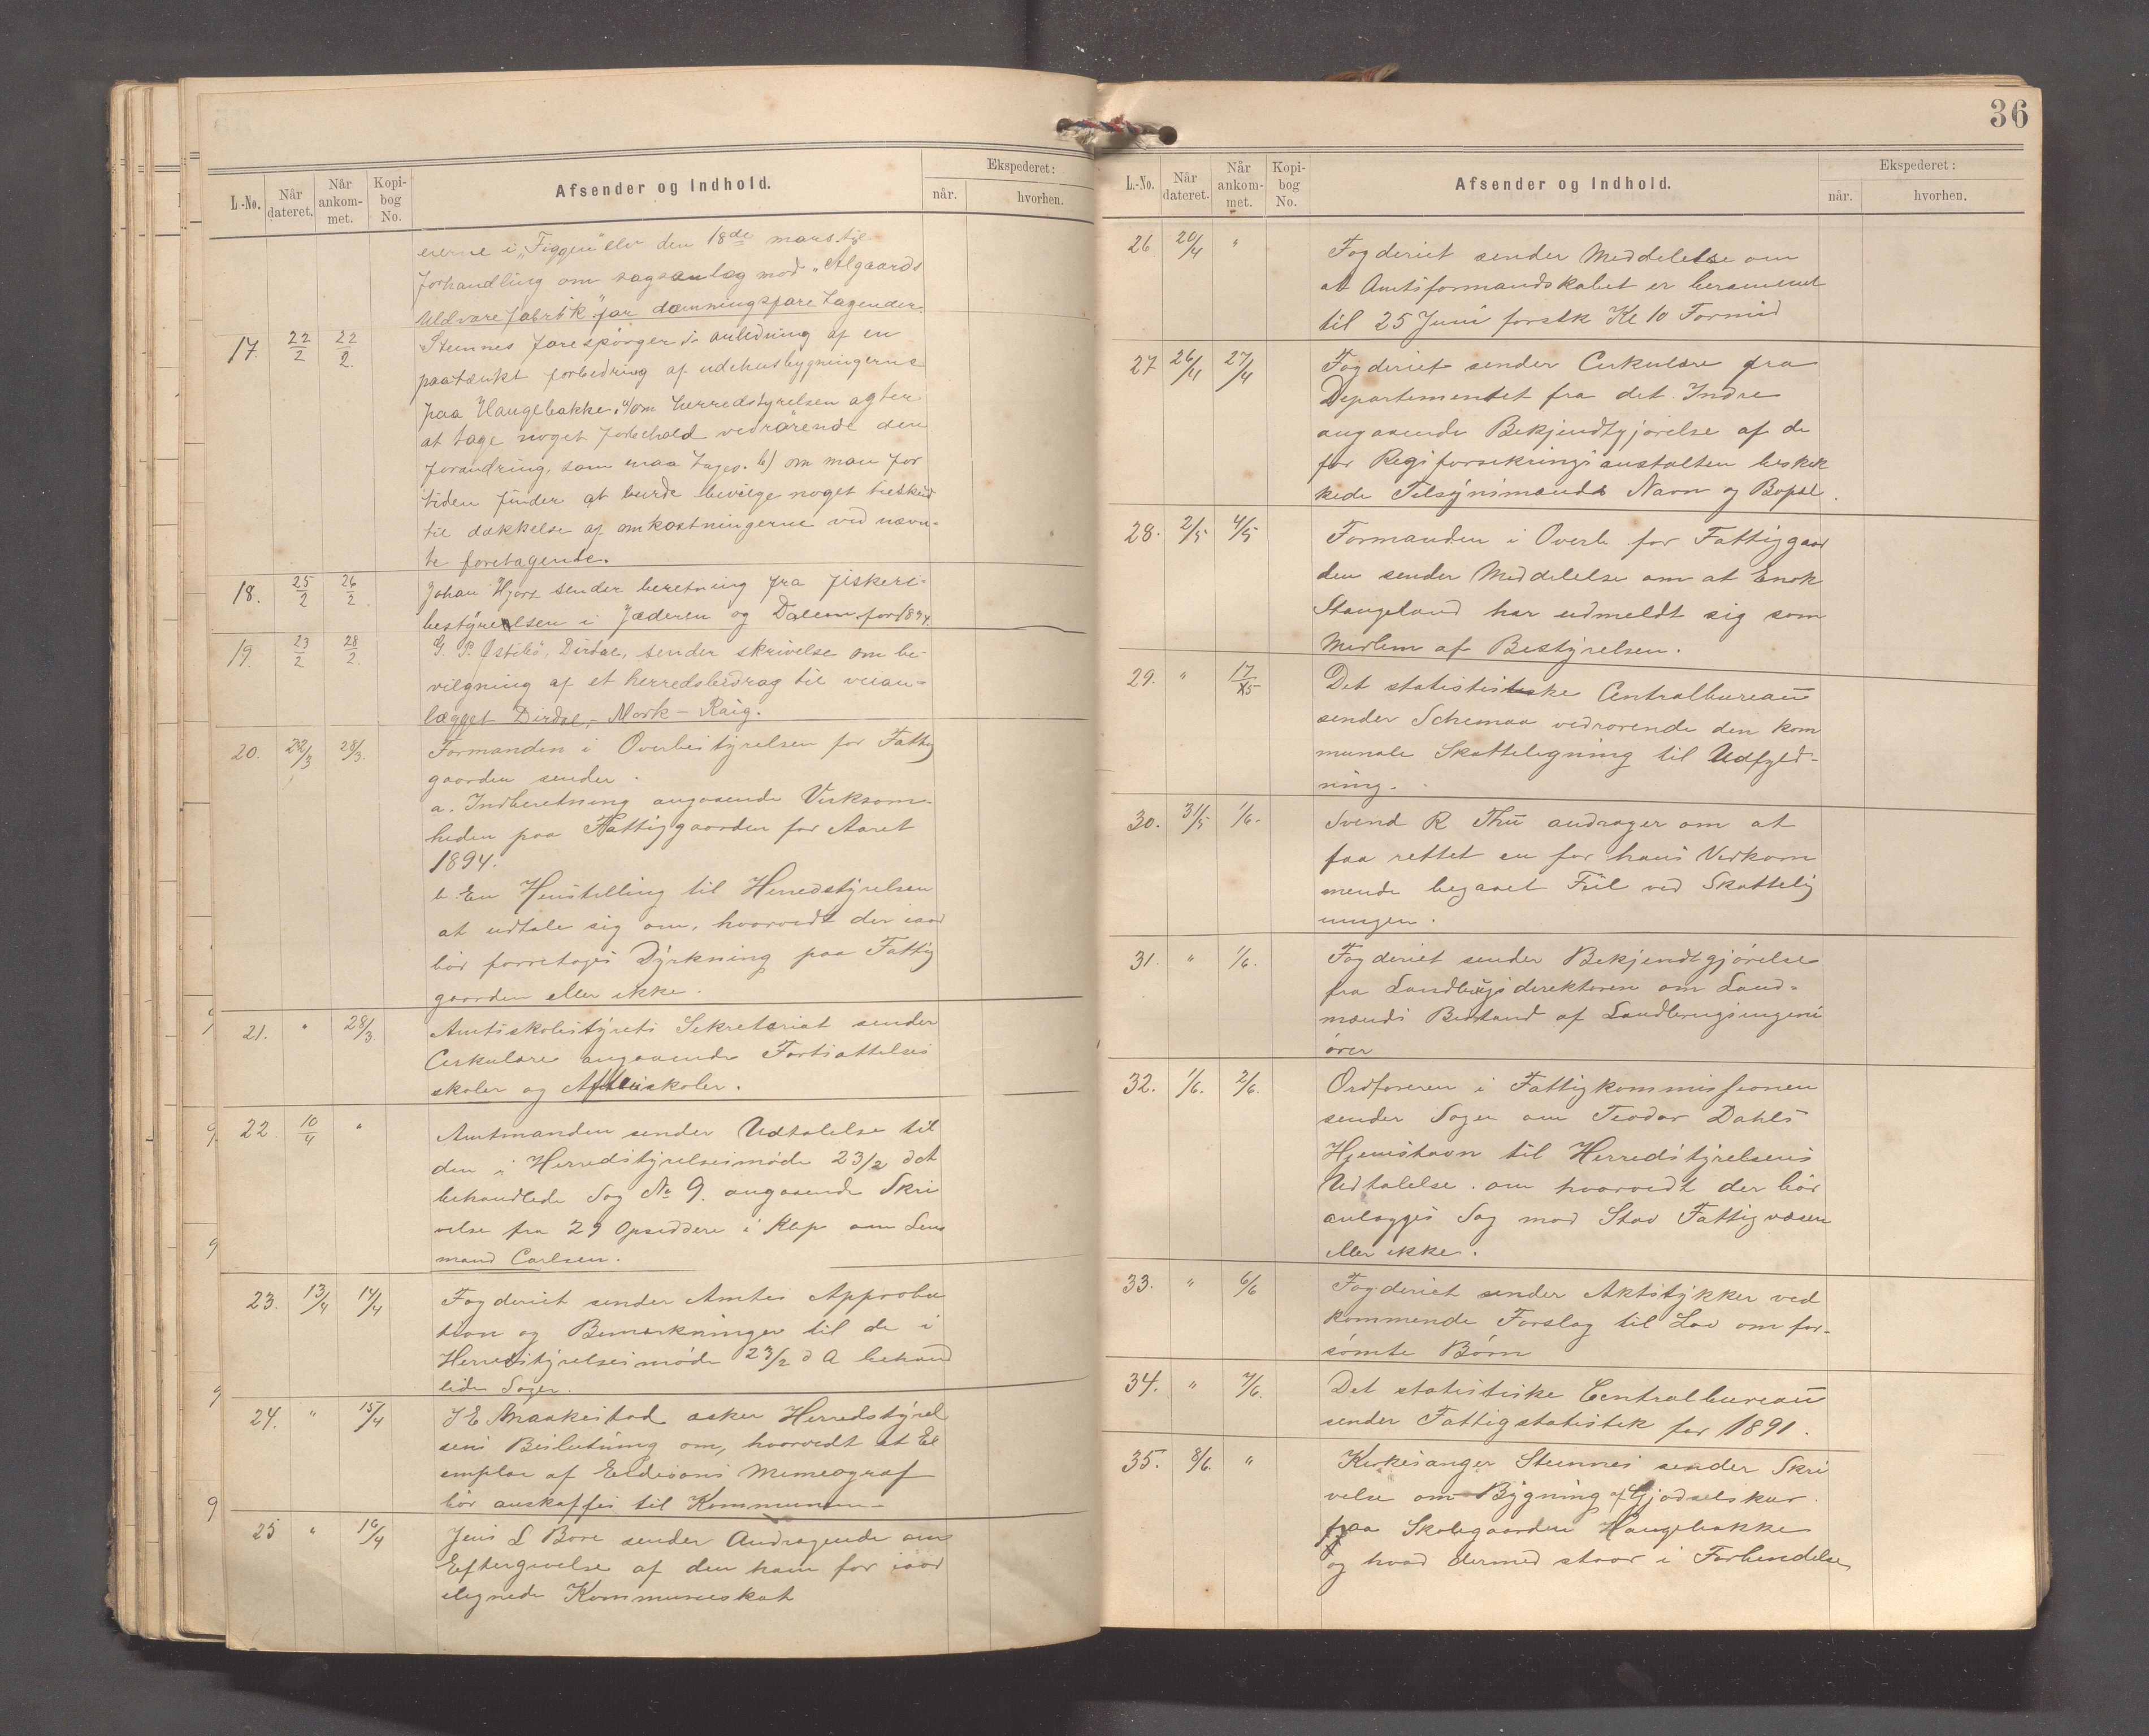 L.-No.
Når dateret.
Når ankom-met.
Kopi-bog No.
Afsender og Indhold.
Ekspederet:
når.
hvorhen.
eierne i „Figgen“ elv den 18de mars til
forhandling om sagsanlæg mod „Algaards
Uldvarefabrik“ for dæmningsforetagender.
17. 22/2 22/2. Stennes forespörger i anledning af en
paatænkt forbedring af udehusbygningerne
paa Haugebakke, a) om herredstyrelsen agter
at tage noget forbehold vedrörende den
forandring, som maa tages. b) om man for
tiden finder at burde bevilge noget tilskud
til dækkelse af omkostningerne ved nævn-
te foretagende.
18. 25/2 26/2 Johan Hjort sender beretning fra fiskeri-
bestyrelsen i Jæderen og Dalern for 1894.
19. 23/2 28/2. G. P. Østebö, Dirdal, sender skrivelse om be-
vilgning af et herredsbidrag til veian-
lægget Dirdal,- Mork - Raig.
20. 22/3 28/3. Formanden i Overbestyrelsen for Fattig
gaarden sender.
a. Indberetning angaaende Virksom-
heden paa Fattiggaarden for Aaret
1894.
b. En Henstilling til Herredstyrelsen
at udtale sig om, hvorvidt der iaar
bör forretages Dyrkning paa Fattig
gaarden eller ikke.
21. " 28/3 Amtsskolestyrets Sekretariat sender
Cirkulære angaaende Fortsættelses
skoler og Aftenskoler.
22 10/4 " Amtmanden sender Udtalelse til
den i Herredstyrelsesmöde 23/2 det
behandlede Sag No 9. angaaende Skri
velse fra 29 Opsiddere i Klep om Lens
mand Carlsen.
23. 13/4 14/4 Fogderiet sender Amtes Approba
tion og Bemærkninger til de i
Herredstyrelsesmöde 23/2 d A behand
lede Sager.
24. " 15/4 J E Braakestad asker Herredstyrel
sens Beslutning om, hvorvidt et Ex
emplar af Eddisons Mimeograf
bör anskaffes til Kommunen-
25 " 16/4 Jens L Bore sender Andragende om
Eftergivelse af den ham for iaar
ilignede Kommuneskat
36
L.-No.
Når dateret.
Når ankom-met.
Kopi-bog No.
Afsender og Indhold.
Ekspederet:
når.
hvorhen.
26 20/4 " Fogderiet sender Meddelelse om
at Amtsformandskabet er berammet
til 25 Juni förstk Kl 10 Formid
27 26/4 27/4 Fogderiet sender Cirkulære fra
Departementet fra det Indre
angaaende Bekjendtgjörelse af de
for Rigsforsikringsanstalten beskik
kede Tilsynsmænds Navn og Bopæl.
28. 2/5 4/5 Formanden i Overb. for Fattiggaar
den sender Meddelelse om at Enok
Stangeland har udmeldt sig som
Medlem af Bestyrelsen.
29. " 17/5 Det statistiske Centralbureau
sender Schemaa vedrorende den kom
munale Skattelegning til Udfyld-
ning.
30. 31/5 1/6. Svend R Thu andrager om at
faa rettet en for hans Vedkom
mende begaaet Feil ved Skattelig
ningen.
31. " 1/6. Fogderiet sender Bekjendtgjörelse
fra Landbrugsdirektoren om Land-
mænds Bistand af Landbrugsingeni
örer
32. 1/6. 2/6. Ordföreren i Fattigkommissionen
sender Sagen om Teodor Dahls
Hjemstavn til Herredstyrelsens
Udtalelse. om hvorvidt der bör
anlægges Sag mod Stav Fattigvæsen
eller ikke.
33. " 6/6 Fogderiet sender Aktstykker ved
kommende Forslag til Lov om for-
sömte Börn
34. " 7/6. Det statistiske Centralbureau
sender Fattigstatistik for 1891.
35. 8/6. " Kirkesanger Stennes sender Skri
velse om Bygning af Gjødselskur
paa Skolegaarden Haugebakke
og hvad dermed staar i Forbindelse